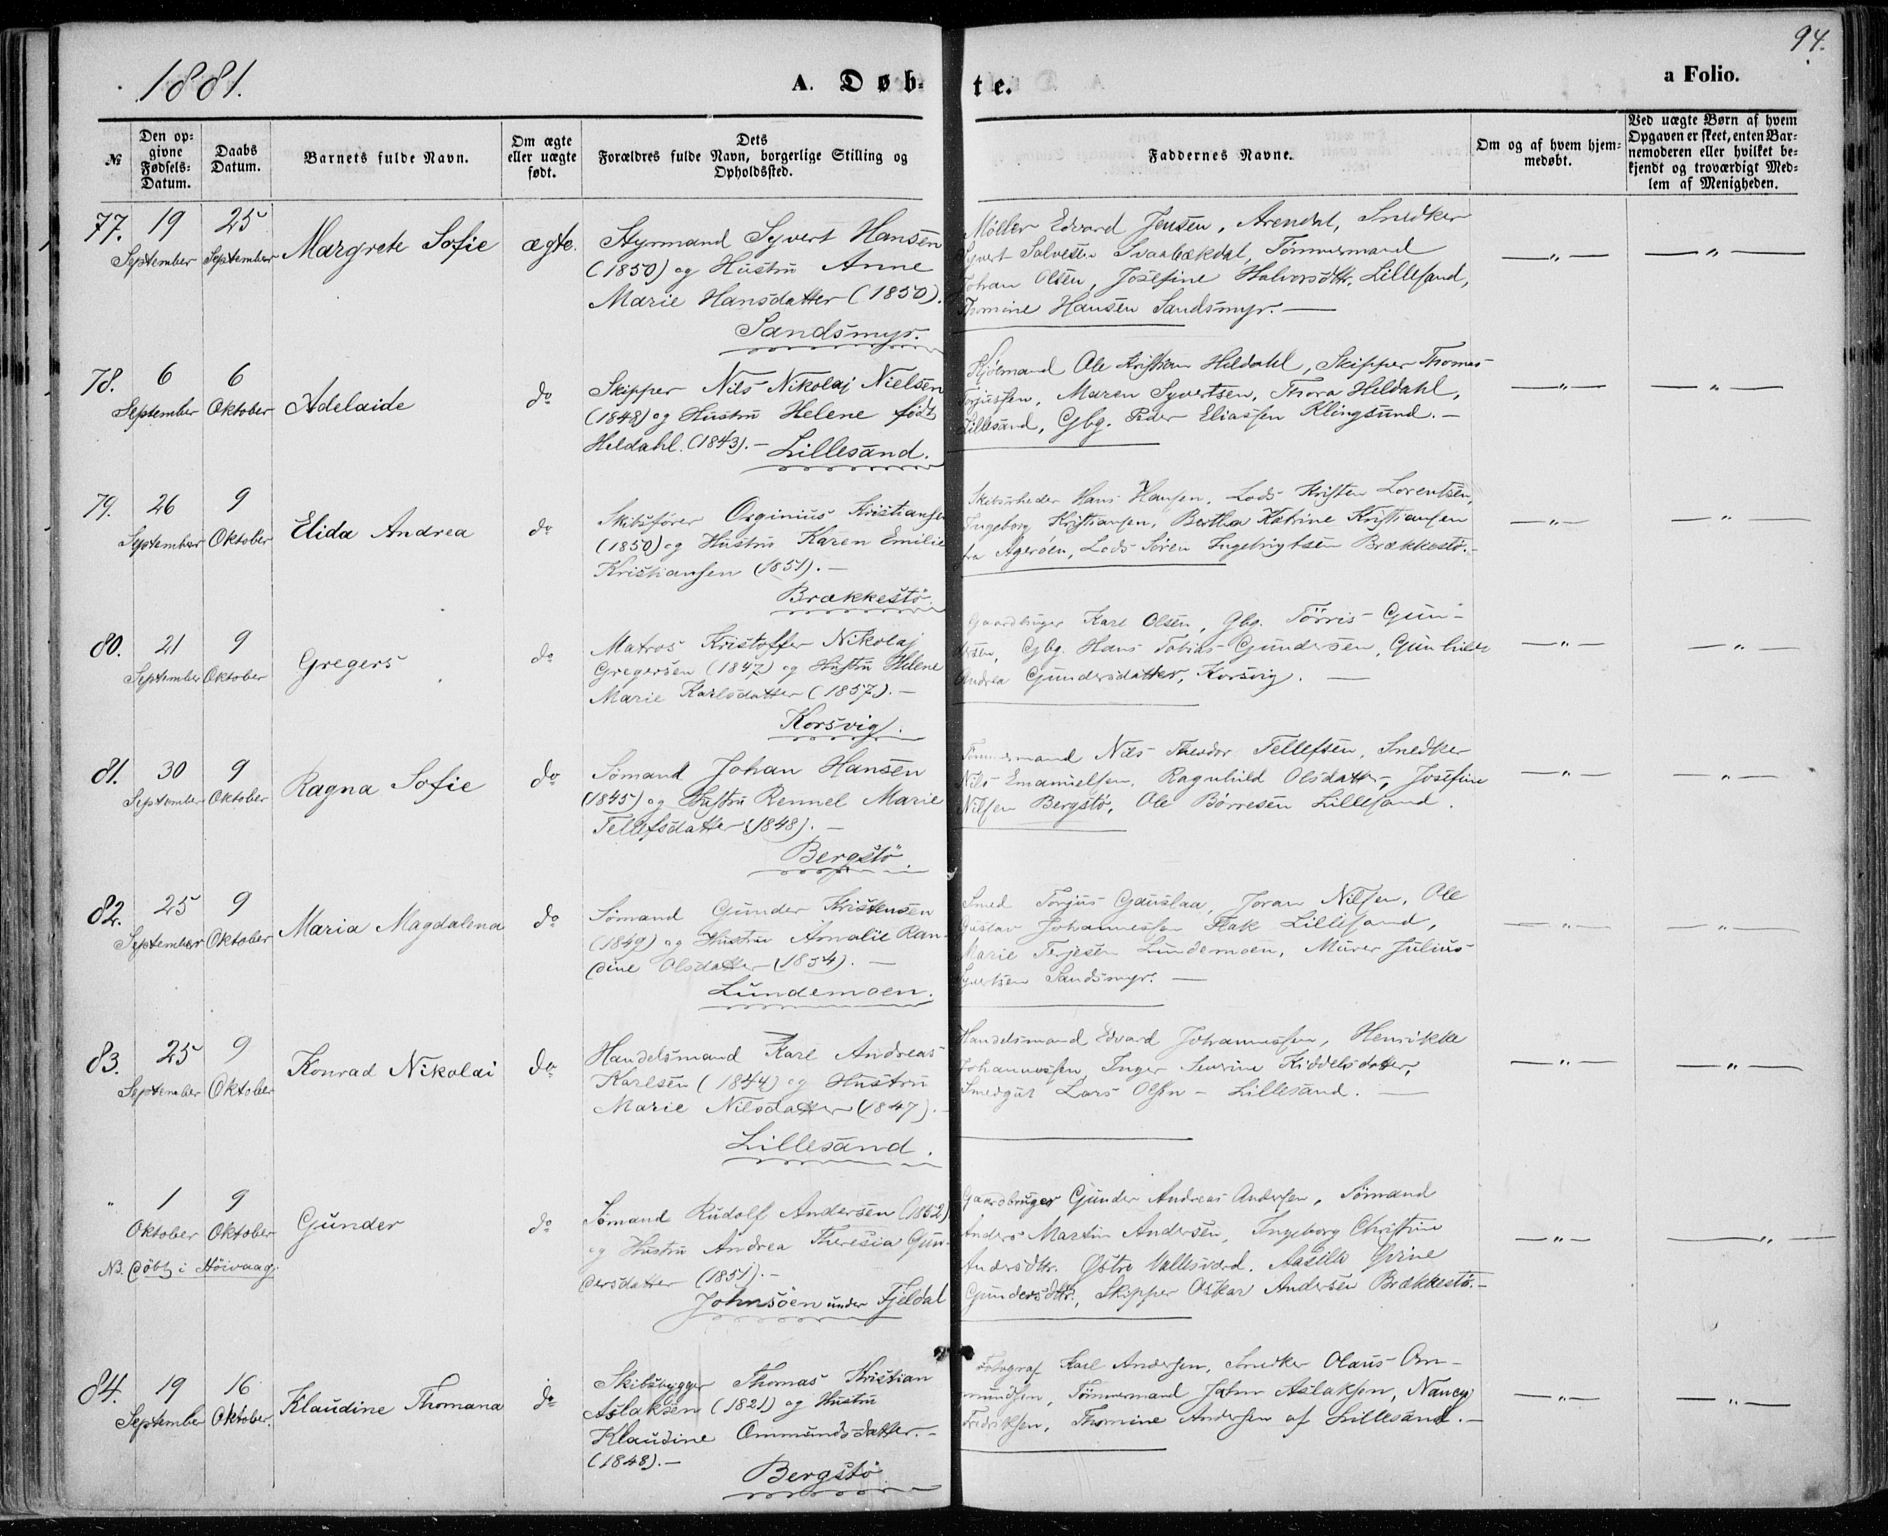 94.
1881.
A. Døbte.
a Folio.
№
Den op-
givne
Fødsels-
Datum.
Daabs
Datum.
Barnets fulde Navn.
Om ægte
eller uægte
født.
Dets
Forældres fulde Navn, borgerlige Stilling og
Opholdssted.
Faddernes Navne.
Om og af hvem hjem-
medøbt.
Ved uægte Børn af hvem
Opgaven er skeet, enten Bar-
nemoderen eller hvilket be-
kjendt og troværdigt Med-
lem af Menigheden.
77. 19 September 25 September Margrete Sofie ægte.
Styrmand Syvert Hansen
(1850) og Hustru Anne
Marie Hansdatter (1850).
Sandsmyr.
Møller Edvard Jensen, Arendal, Snedker
Syvert Salvesen Svarbækdal, Tømmermand
Johan Olsen, Josefine Halvorsdtr. Lillesand,
Thomine Hansen Sandsmyr. —
— " — — " —
78. 6 September 6 Oktober Adelaide do
Skipper Nils Nikolaj Nielsen
(1848) og Hustru Helene født
Heldahl. (1843). — Lillesand.
Ole Kristian Heldahl, Skipper Thomas
Torjussen, Maren Syvertsen, Thora Heldahl,
Lillesand, Gbg. Peder Eliassen Klingsund. —
— " — — " —
79. 26 September 9 Oktober Elida Andrea do
Skibsfører Orginius Kristiansen
(1850) og Hustru Karen Emilie
Kristiansen (1851). —
Brækkestø.
Skibsrheder Hans Hansen, Lods Kristen Lorentsen,
Ingeborg Kristiansen, Bertha Katrine Kristiansen
fra Agerøen, Lods Søren Ingebrigtsen Brækkestø. —
— " — — " —
80. 21 September 9 Oktober Gregers do
Matros Kristoffer Nikolaj
Gregersen (1847) og Hustru Helene
Marie Karlsdatter (1857). —
Korsvig.
Gaardbruger Karl Olsen, Gbg. Tørris Gun-
dersen, Gbg. Hans Tobias Gundersen, Gunhilde
Andrea Gundersdatter, Korsvig. —
— " — — " —
81. 30 September 9 Oktober Ragna Sofie do
Sømand Johan Hansen
(1845) og Hustru Rennel Marie
Tellefsdatter (1848). —
Bergstø.
Tømmermand Nils Theodor Tellefsen, Snedker
Nils Emanuelsen, Ragnhild Olsdatter, Josefine
Nilsen Bergstø, Ole Børresen Lillesand.
— " — — " —
82. 25 September 9 Oktober Maria Magdalena do
Sømand Gunder Kristensen
(1849) og Hustru Amalie Ran-
dine Olsdatter (1854). —
Lundemoen.
Smed Torjus Gauslaa, Joran Nilsen, Ole
Gustav Johannessen Flak Lillesand,
Marie Terjesen Lundemoen, Murer Julius
Syvertsen Sandsmyr. —
— " — — " —
83. 25 September 9 Oktober Konrad Nikolai do
Handelsmand Karl Andreas
Karlsen (1844) og Hustru
Marie Nilsdatter (1847). —
Lillesand.
Handelsmand Edvard Johannessen, Henrikke
Johannessen, Inger Severine Kiddelsdatter,
Smedgut Lars Olsen - Lillesand. —
— " — — " —
" 1 Oktober 9 Oktober Gunder do
NB. døbt i Høivaag.
Sømand Rudolf Andersen (1852)
og Hustru Andrea Theresia Gun-
dersdatter (1851). —
Johnsøen under Fjeldal
Gaardbruger Gunder Andreas Andersen, Sømand
Anders Martin Andersen, Ingeborg Christine
Andersdtr. Østre Vallesværd. Aasille Gurine
Gundersdtr., Skipper Oskar Andersen Brækkestø. —
— " — — " —
84. 19 September 16 Oktober. Klaudine Thomana do
Skibsbygger Thomas Kristian
Aslaksen (1821) og Hustru
Klaudine Ommundsdatter. —
(1848). —
Bergstø
Fotograf Karl Andersen, Snedker Olaus Om-
mundsen, Tømmermand John Aslaksen, Nancy
Fredriksen, Thomine Andersen af Lillesand. —
— " — — " —